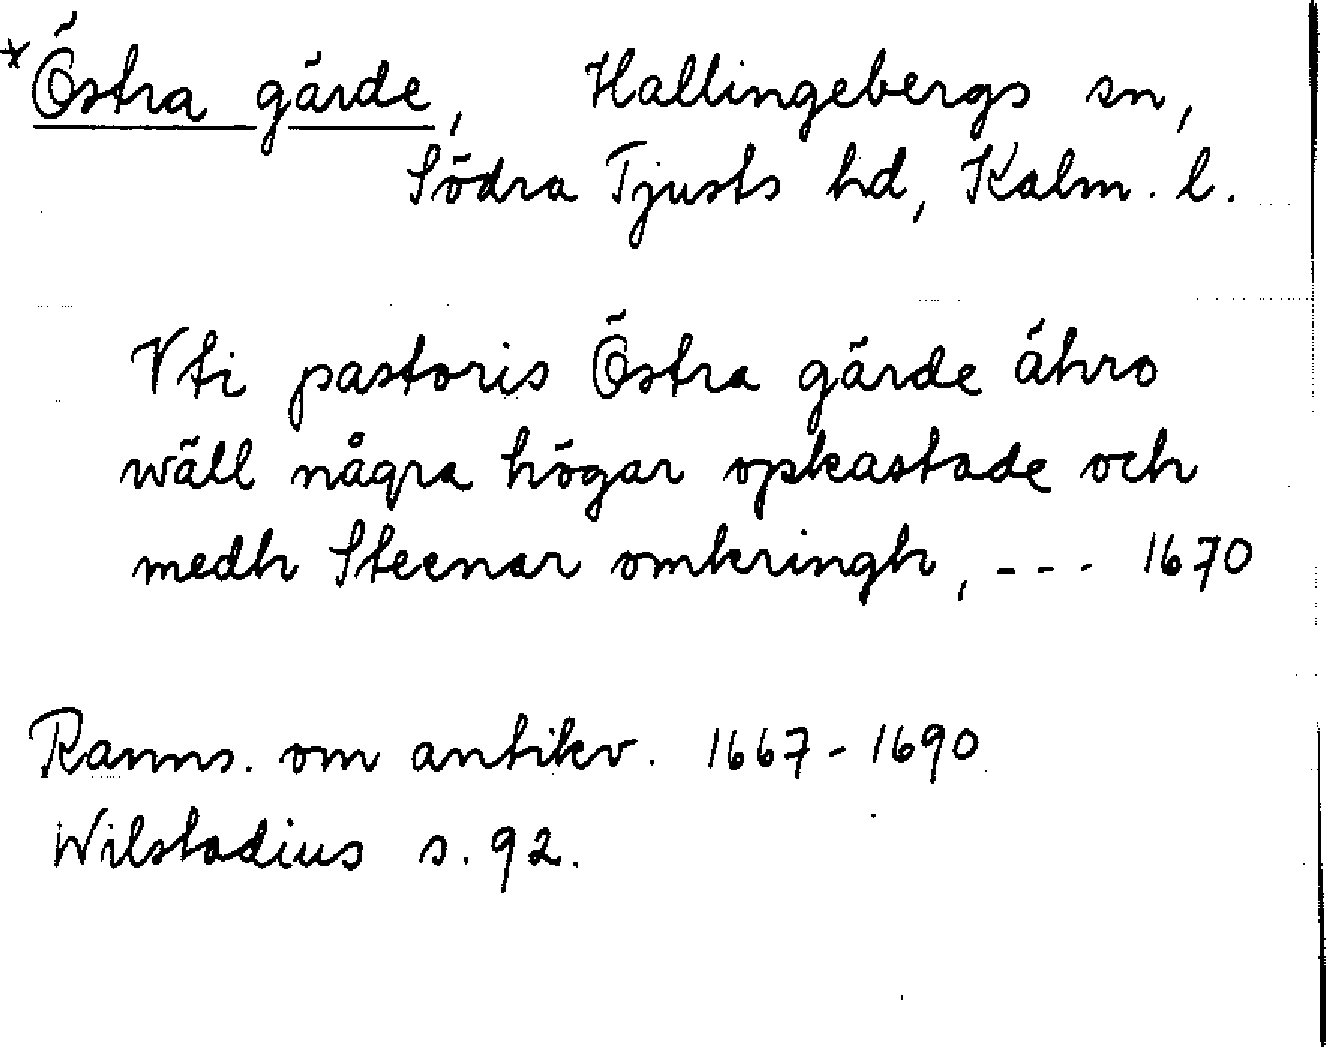 *Östra gärde, Hallingebergs sn,
Södra Tjusts hd, Kalm. l.
Vti pastoris Östra gärde ähro
wäll några högar opkastade och
medh Steenar omkringh, --- 1670
Ranns. om antikv. 1667-1690
Wilstadius s. 92.